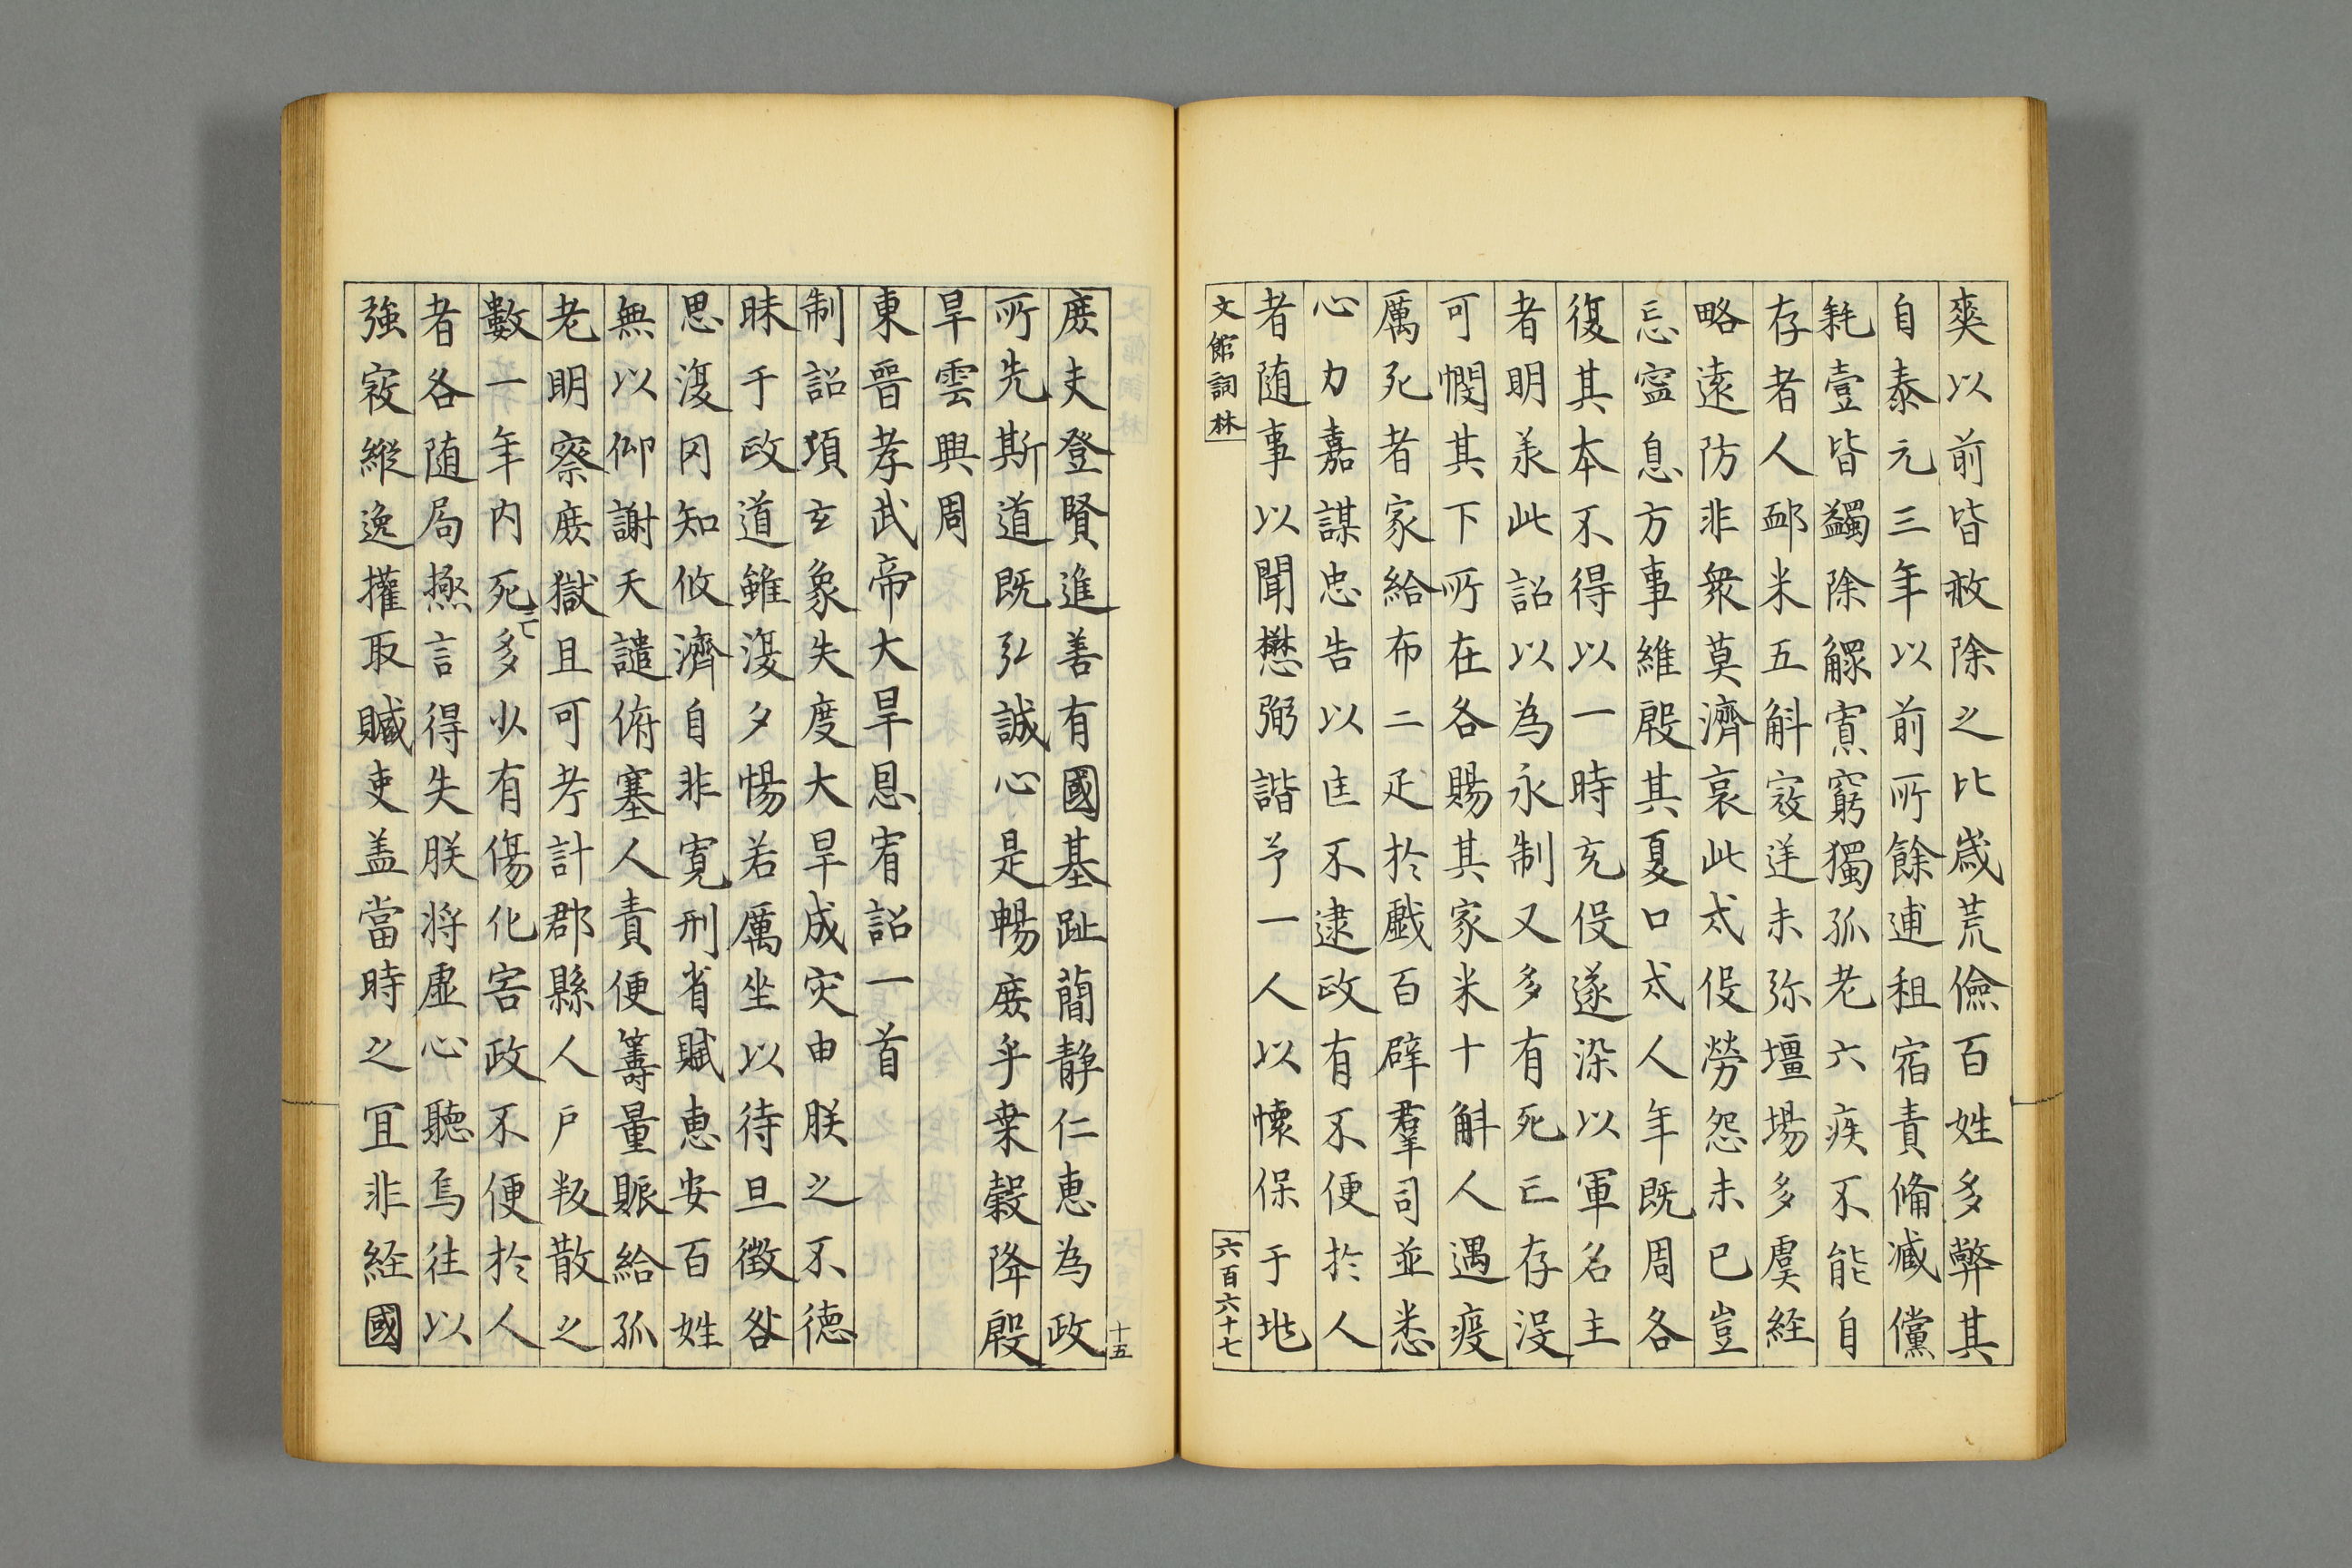 爽以前皆赦除之比歳荒儉百姓多弊其
自泰元三年以前所餘逋租宿責偹减儻
耗壹皆蠲除鰥寡窮獨孤老六疾不能自
存者人䘏米五斛寇逆未弥壇場多虞経
略遠防非衆莫濟哀此戍役勞怨未已豈
忘寧息方事維殷其夏口戍人年既周各
復其本不得以一時充役遂染以軍名主
者明羕此詔以為永制又多有死亡存沒
可憫其下所在各賜其家米十斛人遇疫
厲死者家給布二疋扵戱百辟羣司並悉
心力嘉謀忠告以匡不逮政有不便扵人
者随事以聞懋弼諧予一人以懐保于地
文館詞林
六百六十七
十五
庻夫登賢進善有國基趾蕳静仁恵為政
所先斯道既弘誠心是暢庻乎桒糓降殷
旱雲興周
東晉孝武帝大旱恩宥詔一首
制詔項玄象失度大旱成灾由朕之不德
昧于政道雖復夕惕若厲坐以待旦徴咎
思復罔知攸濟自非寛刑省賦恵安百姓
無以仰謝天譴俯塞人責便籌量賑給孤
老明察庻獄且可考計郡縣人戶叛散之
數一年内死亡多少有傷化害政不便扵人
者各随局極言得失朕将虚心聽焉往以
強寇縱逸攉取贓吏盖當時之冝非経國